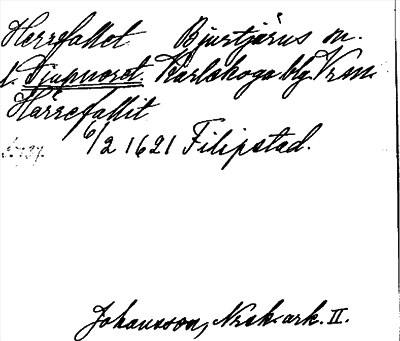 Herrefallet Bjurtjärns sn.
t. Djupnoret. Karlskoga bg Vrm.
Härrefallit
6/2 1621 Filipstad.
Johansson, Nrsk-ark. II.